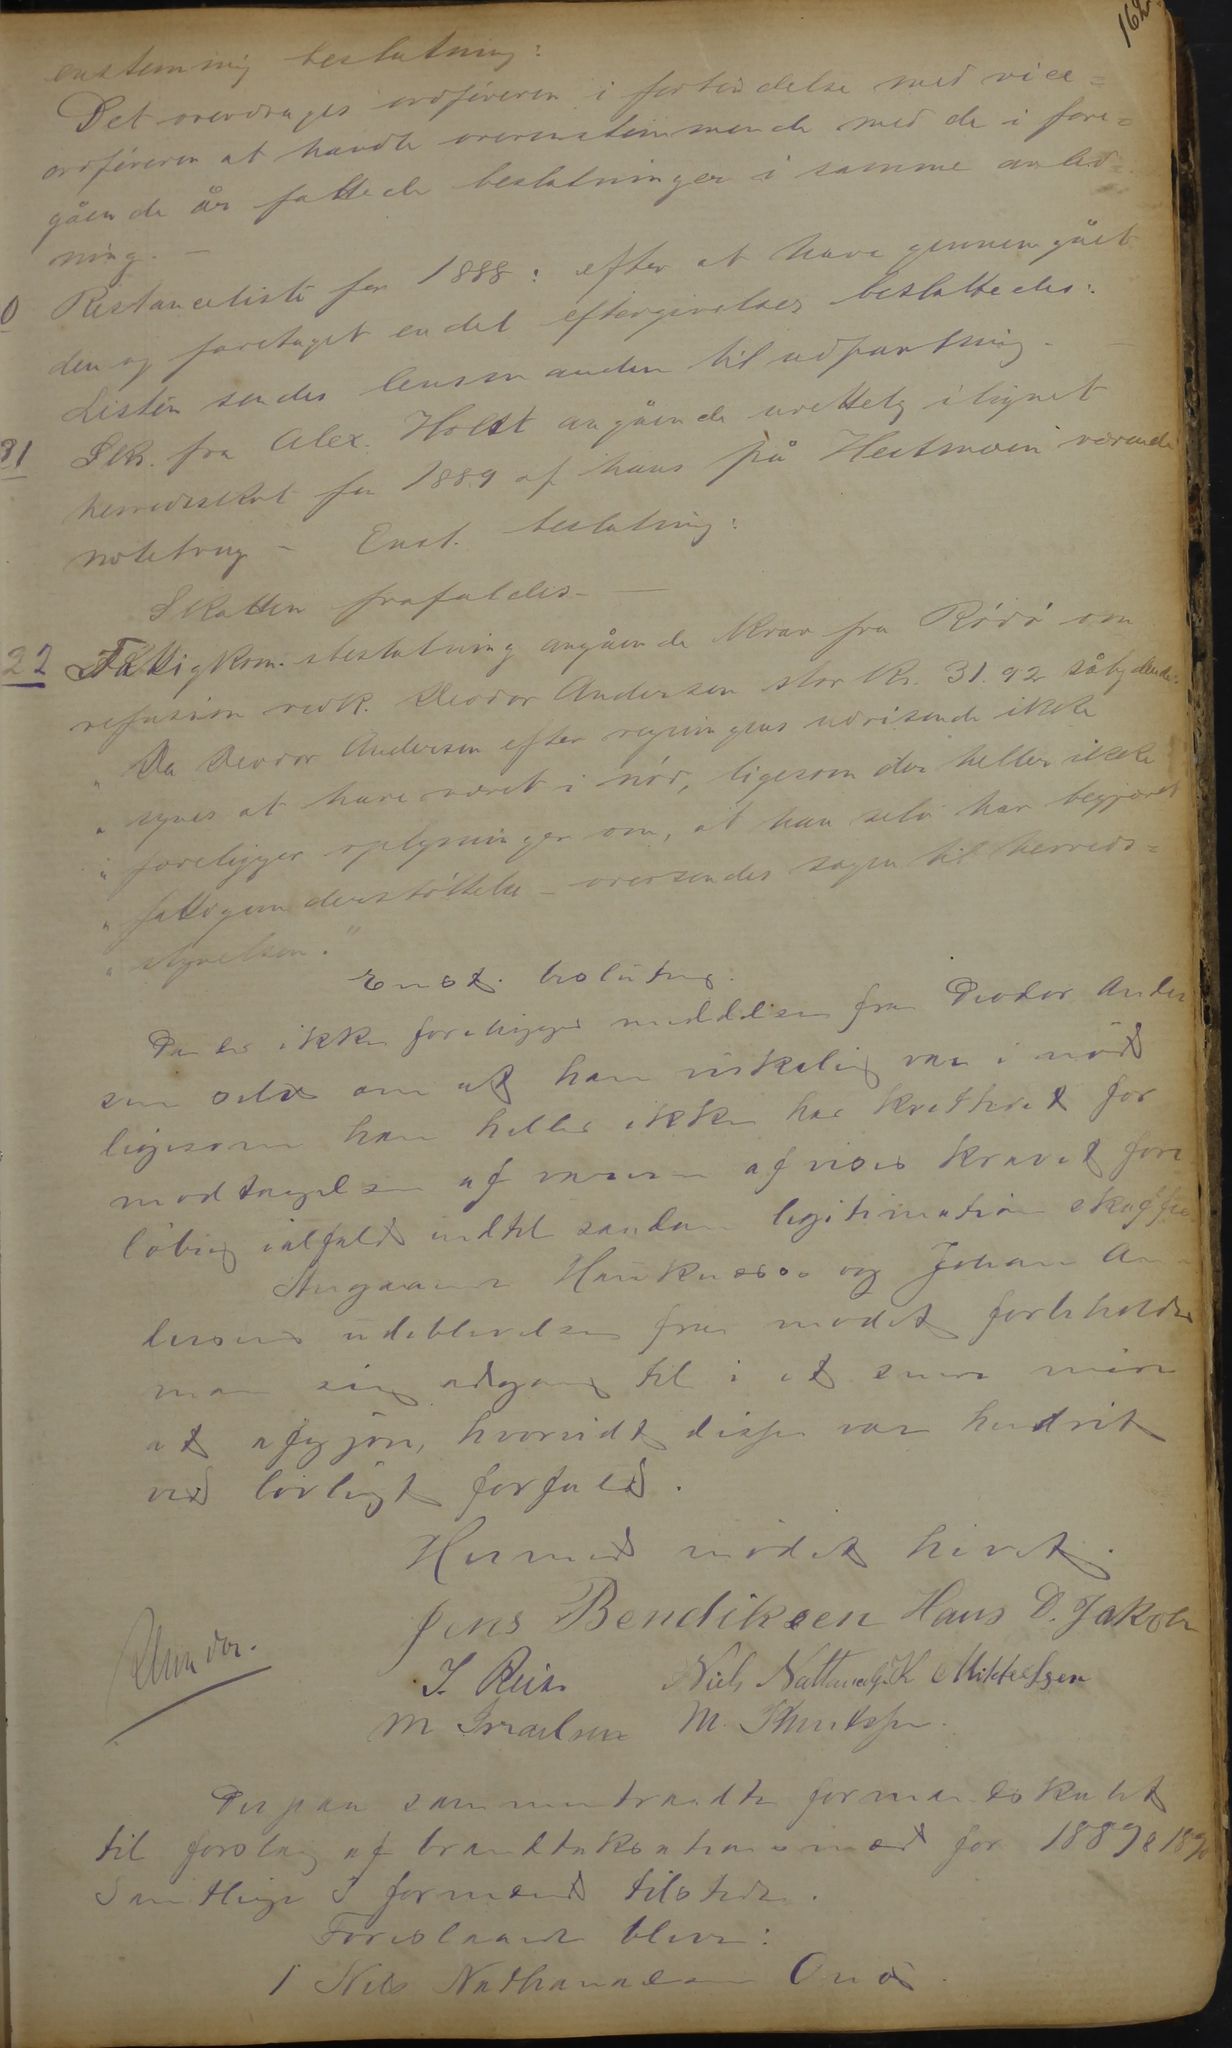 162
enstemmig beslutning:
Det overdrages ordføreren i forbindelse med vice=
ordføreren at handle overenstemmende med de i fore=
gående år fattede beslutninger i samme anled=
ning. —
0 Restanceliste for 1888: efter at have gennemgået
den og foretaget endel eftergivelser besluttedes:
Listen sendes lensmanden til udpantning. —
21 Skr. fra Alex. Holst angående urettelig ilignet
herredsskat for 1889 af hans på Hestmoen værende
notebrug — Enst. beslutning:
Skatten frafaldes. —
22 Fattigkom.sbeslutning angående krav fra Rödö om
refusion vedk. Peodor Andersen stor kr. 31.92 sålydende:
" Da Peodor Andersen efter regningens udvisende ikke
" synes at have været i nöd, ligesom der heller ikke
" foreligger oplysninger om, at han selv har begjæret
" fattigunderstöttelse — oversendes sagen til herreds=
" styrelsen."
Enst. beslutng.
Da der ikke foreligger meddelse fra Peodor Ander
sen selv om at han virkelig var i nöd
ligesom han heller ikke har kvitteret for
modtagelsen af varerne afvises kravet fore
löbig ialfald indtil saadan legitimation skaffes
Angaaende Haukness og Johan An
dersens udeblivelse fra mödet forbeholder
man sig adgang til i et senere möde
at afgjöre, hvorvidt disse var hindret
ved lovligt forfald.
Hermed mödet hævet.
Jens Bendiksen Hans D. Jakob
J. Reis Niels Nathanael K Mikkelsen
M Israelsen M. Knutssen.
Derpaa sammentraadte formandskabet
til forslag af brandtakstationsmænd for 1889 & 1890
Samtlige 5 formænd tilstede.
Foreslaaede blev:
1 Nils Nathanaelsen Onö